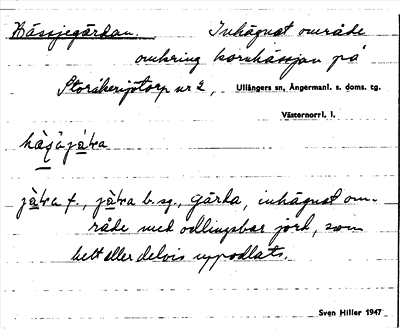 Hässjegärdan. Inhägnat område
omkring kornhässjan på
Storåkersjötorp nr 2, Ullångers sn, Ångermanl. s. doms. tg.
Västernorrl. l.
f., b. sg., gärda, inhägnat om-
råde med odlingsbar jord, som
helt eller delvis uppodlats.
Sven Hiller 1947